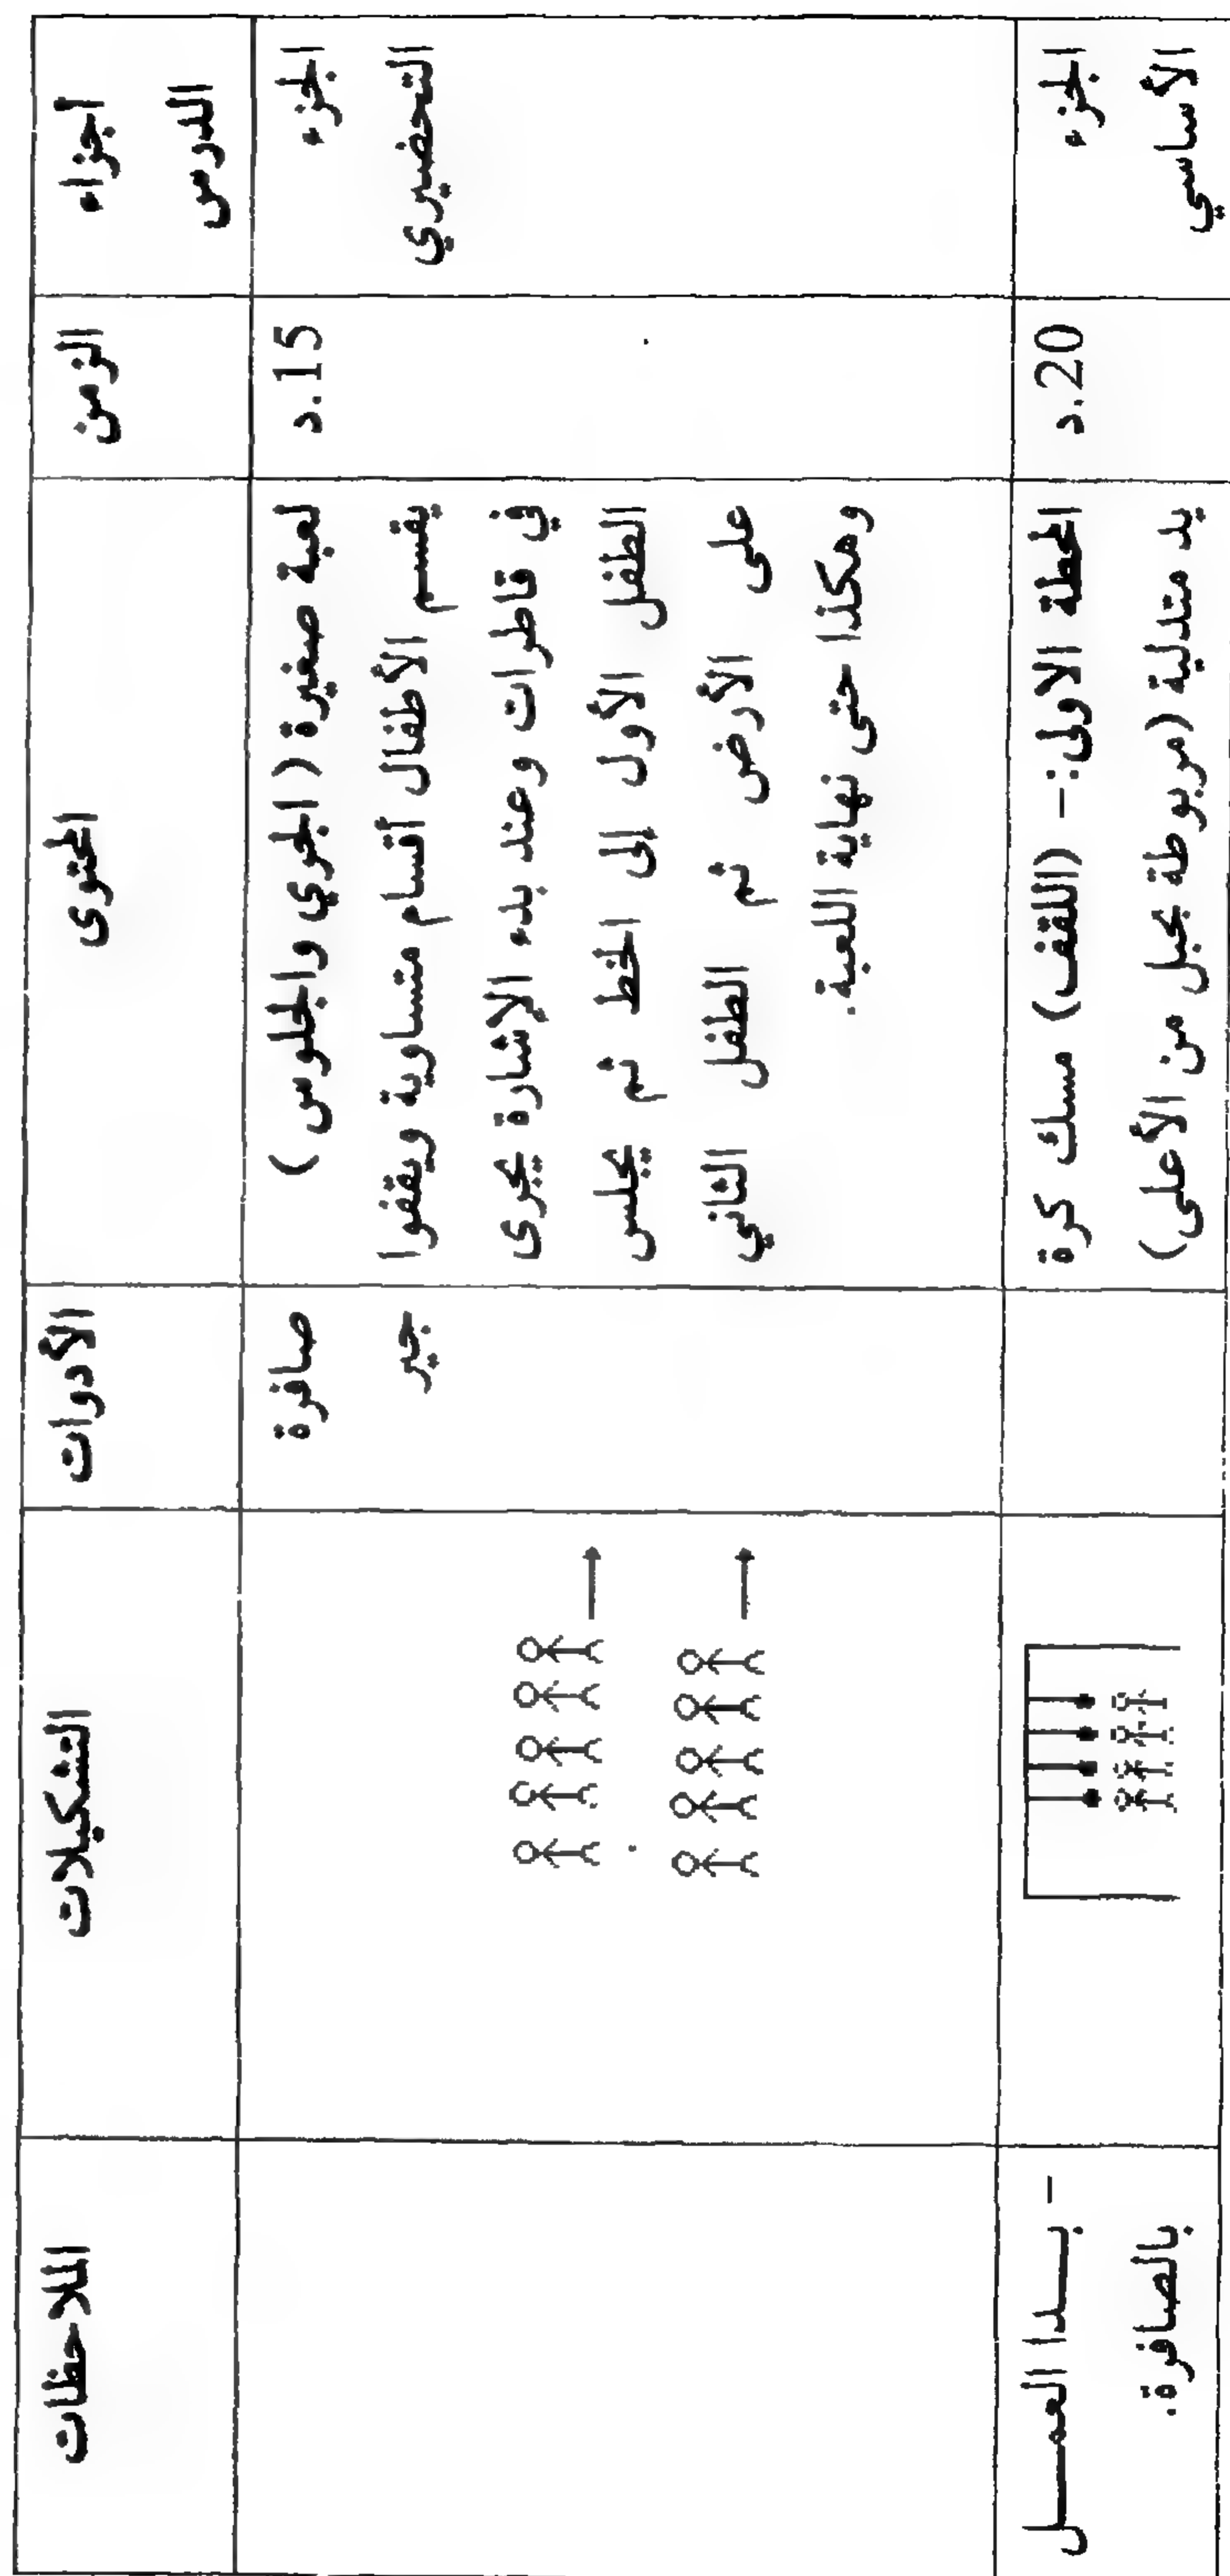 أجزاء
الدرس
الزمن
المحتوى
الأدوات
التشكيلات
الملاحظات
الجزء
التحضيري
15.د
لعبة صغيرة (الجري والجلوس)
يقسم الأطفال أقسام متساوية ويقفوا
في قاطرات وعند بدء الإشارة يجرى
الطفل الأول إلى الخط ثم يجلس
على الأرض ثم الطفل الثاني
وهكذا حتى نهاية اللعبة.
صافرة
جير
الجزء
الأساسي
20.د
المحطة الاولى:- (اللقف) مسك كرة
يد متدلية (مربوطة بحبل من الأعلى)
- بدا العمل
بالصافرة.